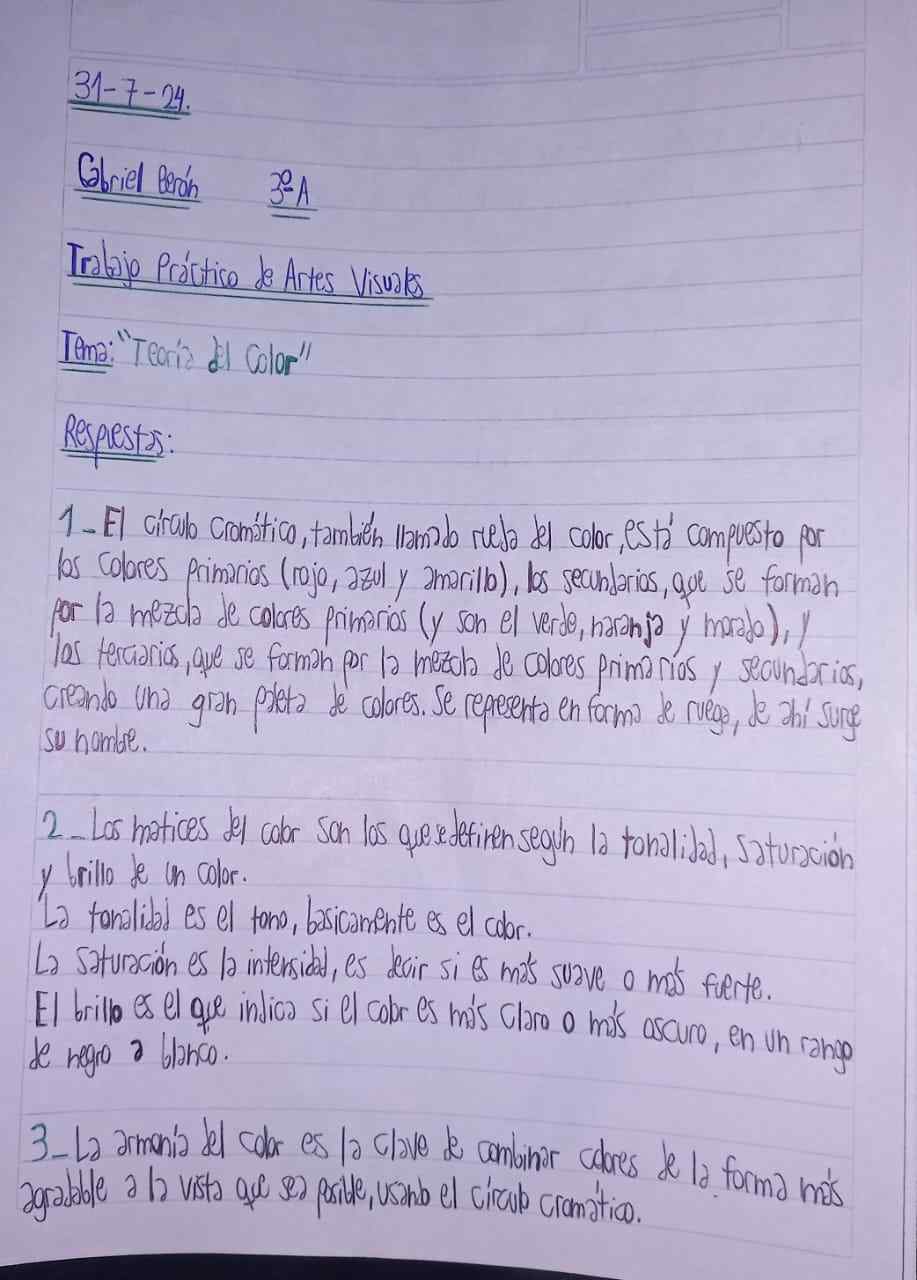 31-7-24.
Gabriel Perón 3ºA
Trabajo Práctico de Artes Visuales
Tema: "Teoría del Color"
Respuestas:
1_ El círculo cromático, también llamado rueda del color, está compuesto por
los colores primarios (rojo, azul y amarillo), los secundarios, que se forman
por la mezcla de colores primarios (y son el verde, naranja y morado), y
los terciarios, que se forman por la mezcla de colores primarios y secundarios,
creando una gran paleta de colores. Se representa en forma de rueda, de ahí surge
su nombre.
2_ Los matices del color son los que se definen según la tonalidad, saturación
y brillo de un color.
La tonalidad es el tono, basicamente es el color.
La saturación es la intensidad, es decir si es más suave o más fuerte.
El brillo es el que indica si el color es más claro o más oscuro, en un rango
de negro a blanco.
3_ La armonía del color es la clave de combinar colores de la forma más
agradable a la vista que sea posible, usando el círculo cromático.